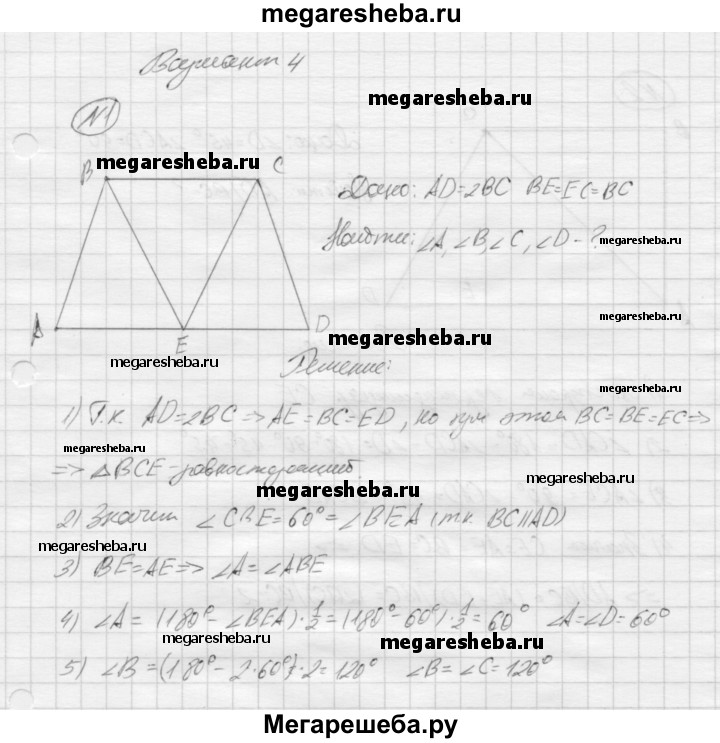 megaresheba.ru
Вариант 4
megaresheba.ru
№1
megaresheba.ru
B C
Дано: AD=2BC BE=EC=BC
Найти: ∠A, ∠B, ∠C, ∠D - ?
megaresheba.ru
A E D
megaresheba.ru
megaresheba.ru
Решение:
megaresheba.ru
1) Т.к. AD=2BC => AE=BC=ED, но при этом BC=BE=EC =>
megaresheba.ru
=> △BCE - равносторонний.
megaresheba.ru
megaresheba.ru
2) Значит ∠CBE=60°=∠BEA (т.к. BC||AD)
megaresheba.ru
3) BE=AE => ∠A=∠ABE
4) ∠A = (180°-∠BEA)·1/2=(180°-60°)·1/2=60° ∠A=∠D=60°
megaresheba.ru
megaresheba.ru
5) ∠B=(180°-2·60°)·2=120° ∠B=∠C=120°
Мегарешеба.ру